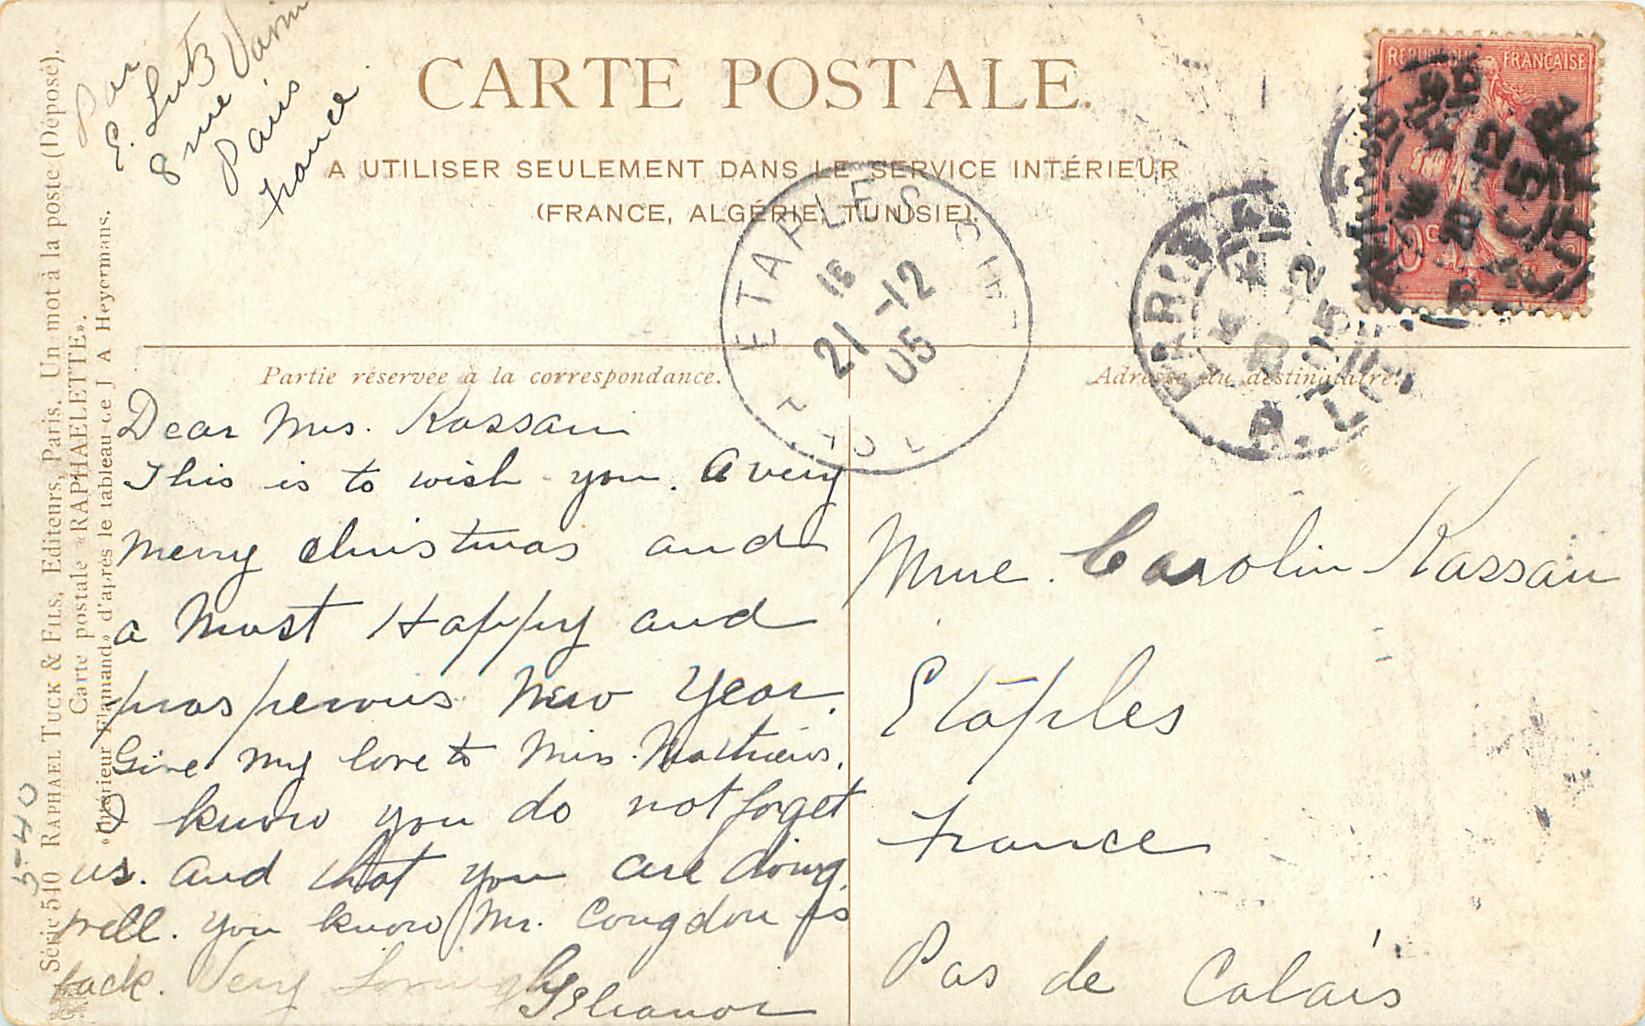 Par
E. Lutz
8 rue Vavin
Paris
France.
CARTE POSTALE.
A UTILISER SEULEMENT DANS LE SERVICE INTÉRIEUR
(FRANCE, ALGÉRIE, TUNISIE).
REPUBLIQUE FRANÇAISE
10c
ETAPLES
21 -12
05
PARIS
Partie réservée à la correspondance.
Adresse du destinataire.
Dear Mrs. Kassain
This is to wish you. a very
merry christmas and
a Most Happy and
prosperous New Year.
Give my love to Miss.
I know you do not forget
us. and that you are doing
well. You know Mr. Congdon is
back. Very Lovingly
Eleanor
Mme. Carolin Kassain
Etaples
France
Pas de Calais
Série 540 RAPHAEL TUCK & FILS, Editeurs, Paris. Un mot à la poste (Déposé).
Carte postale «RAPHAELETTE».
«Intérieur Flamand» d'après le tableau de J A Heyermans.
5-40